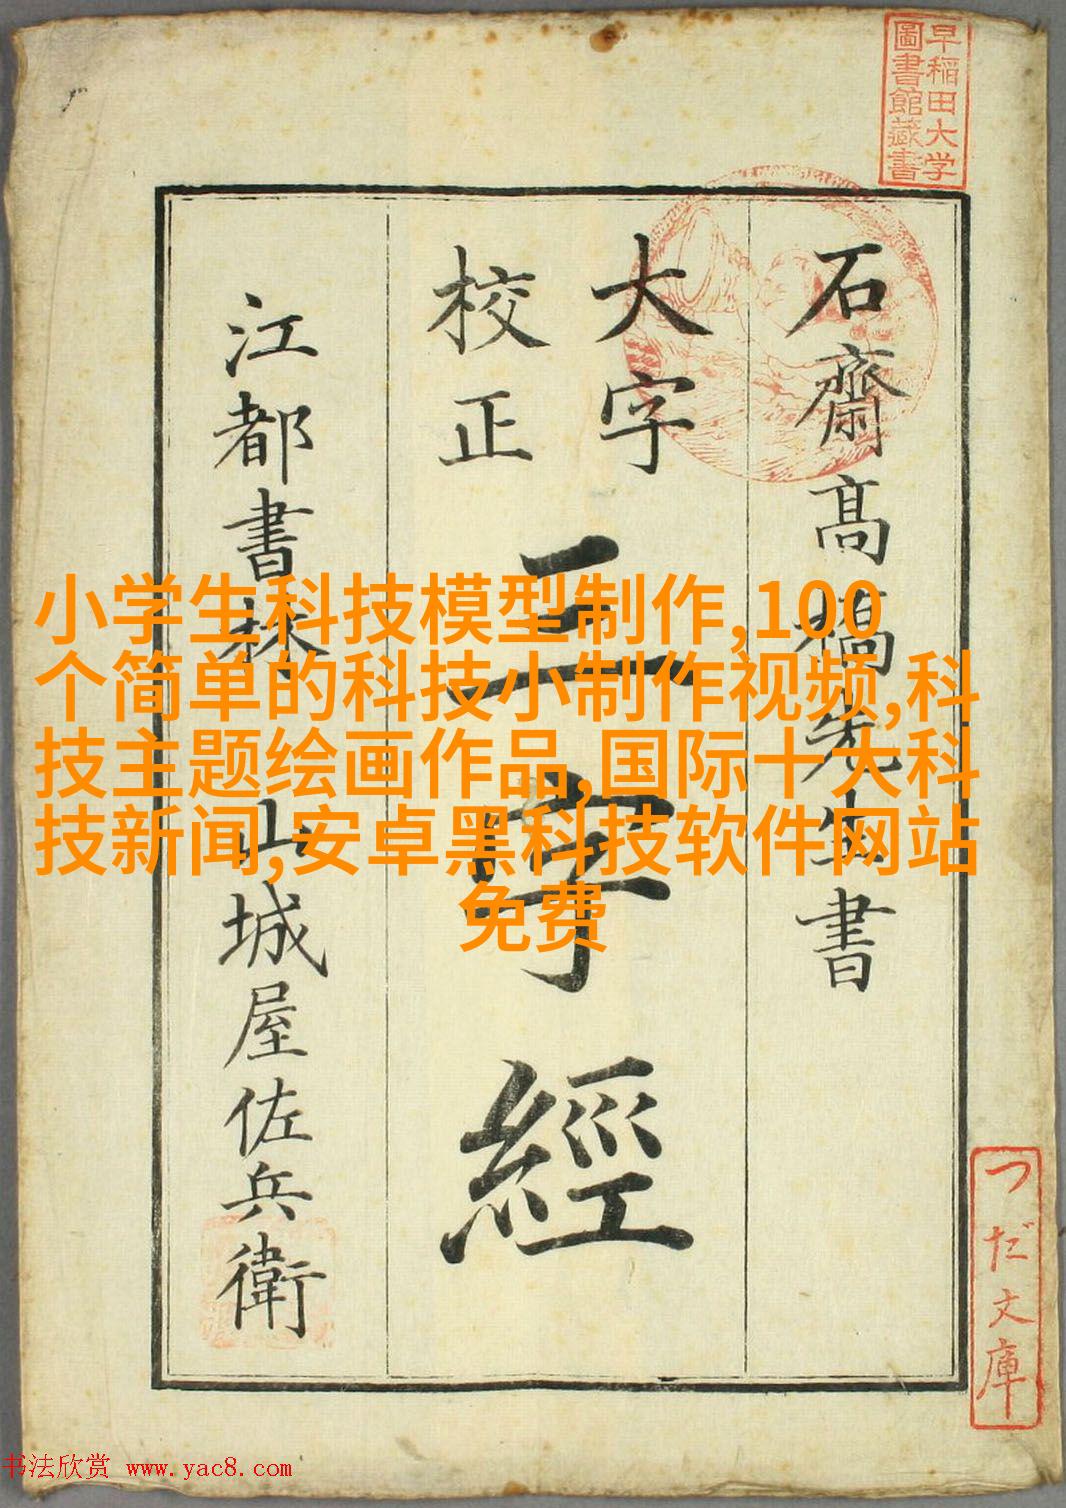 早稲田大学
圖書館藏書
石齋髙橋先生書
大字
校正
三字經
江都書林 山城屋佐兵衛
小学生科技模型制作,100
个简单的科技小制作视频,科
技主题绘画作品,国际十大科
技新闻,安卓黑科技软件网站
免费
つだ文庫
书法欣赏 www.yac8.com